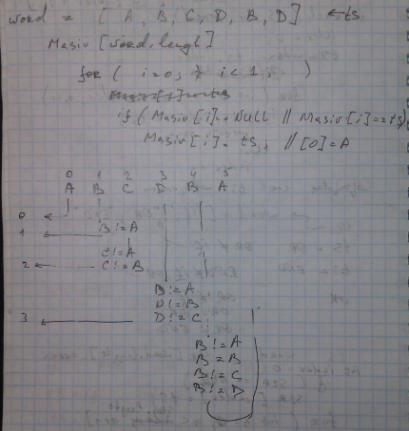 word = [ A, B, C, D, B, D] ← ts
Masiv [word.lengh]
for ( i=0, i<1; )
if ( Masiv [i]= Null || Masiv [i]=ts)
Masiv [i]= ts, //[0]=A
0 1 2 3 4 5
A B C D B A
0 ←
1 ← B!=A
C!=A
2 ← C!=B
D!=A
D!=B
3 ← D!=C
B!=A
B=B
B!=C
B!=D